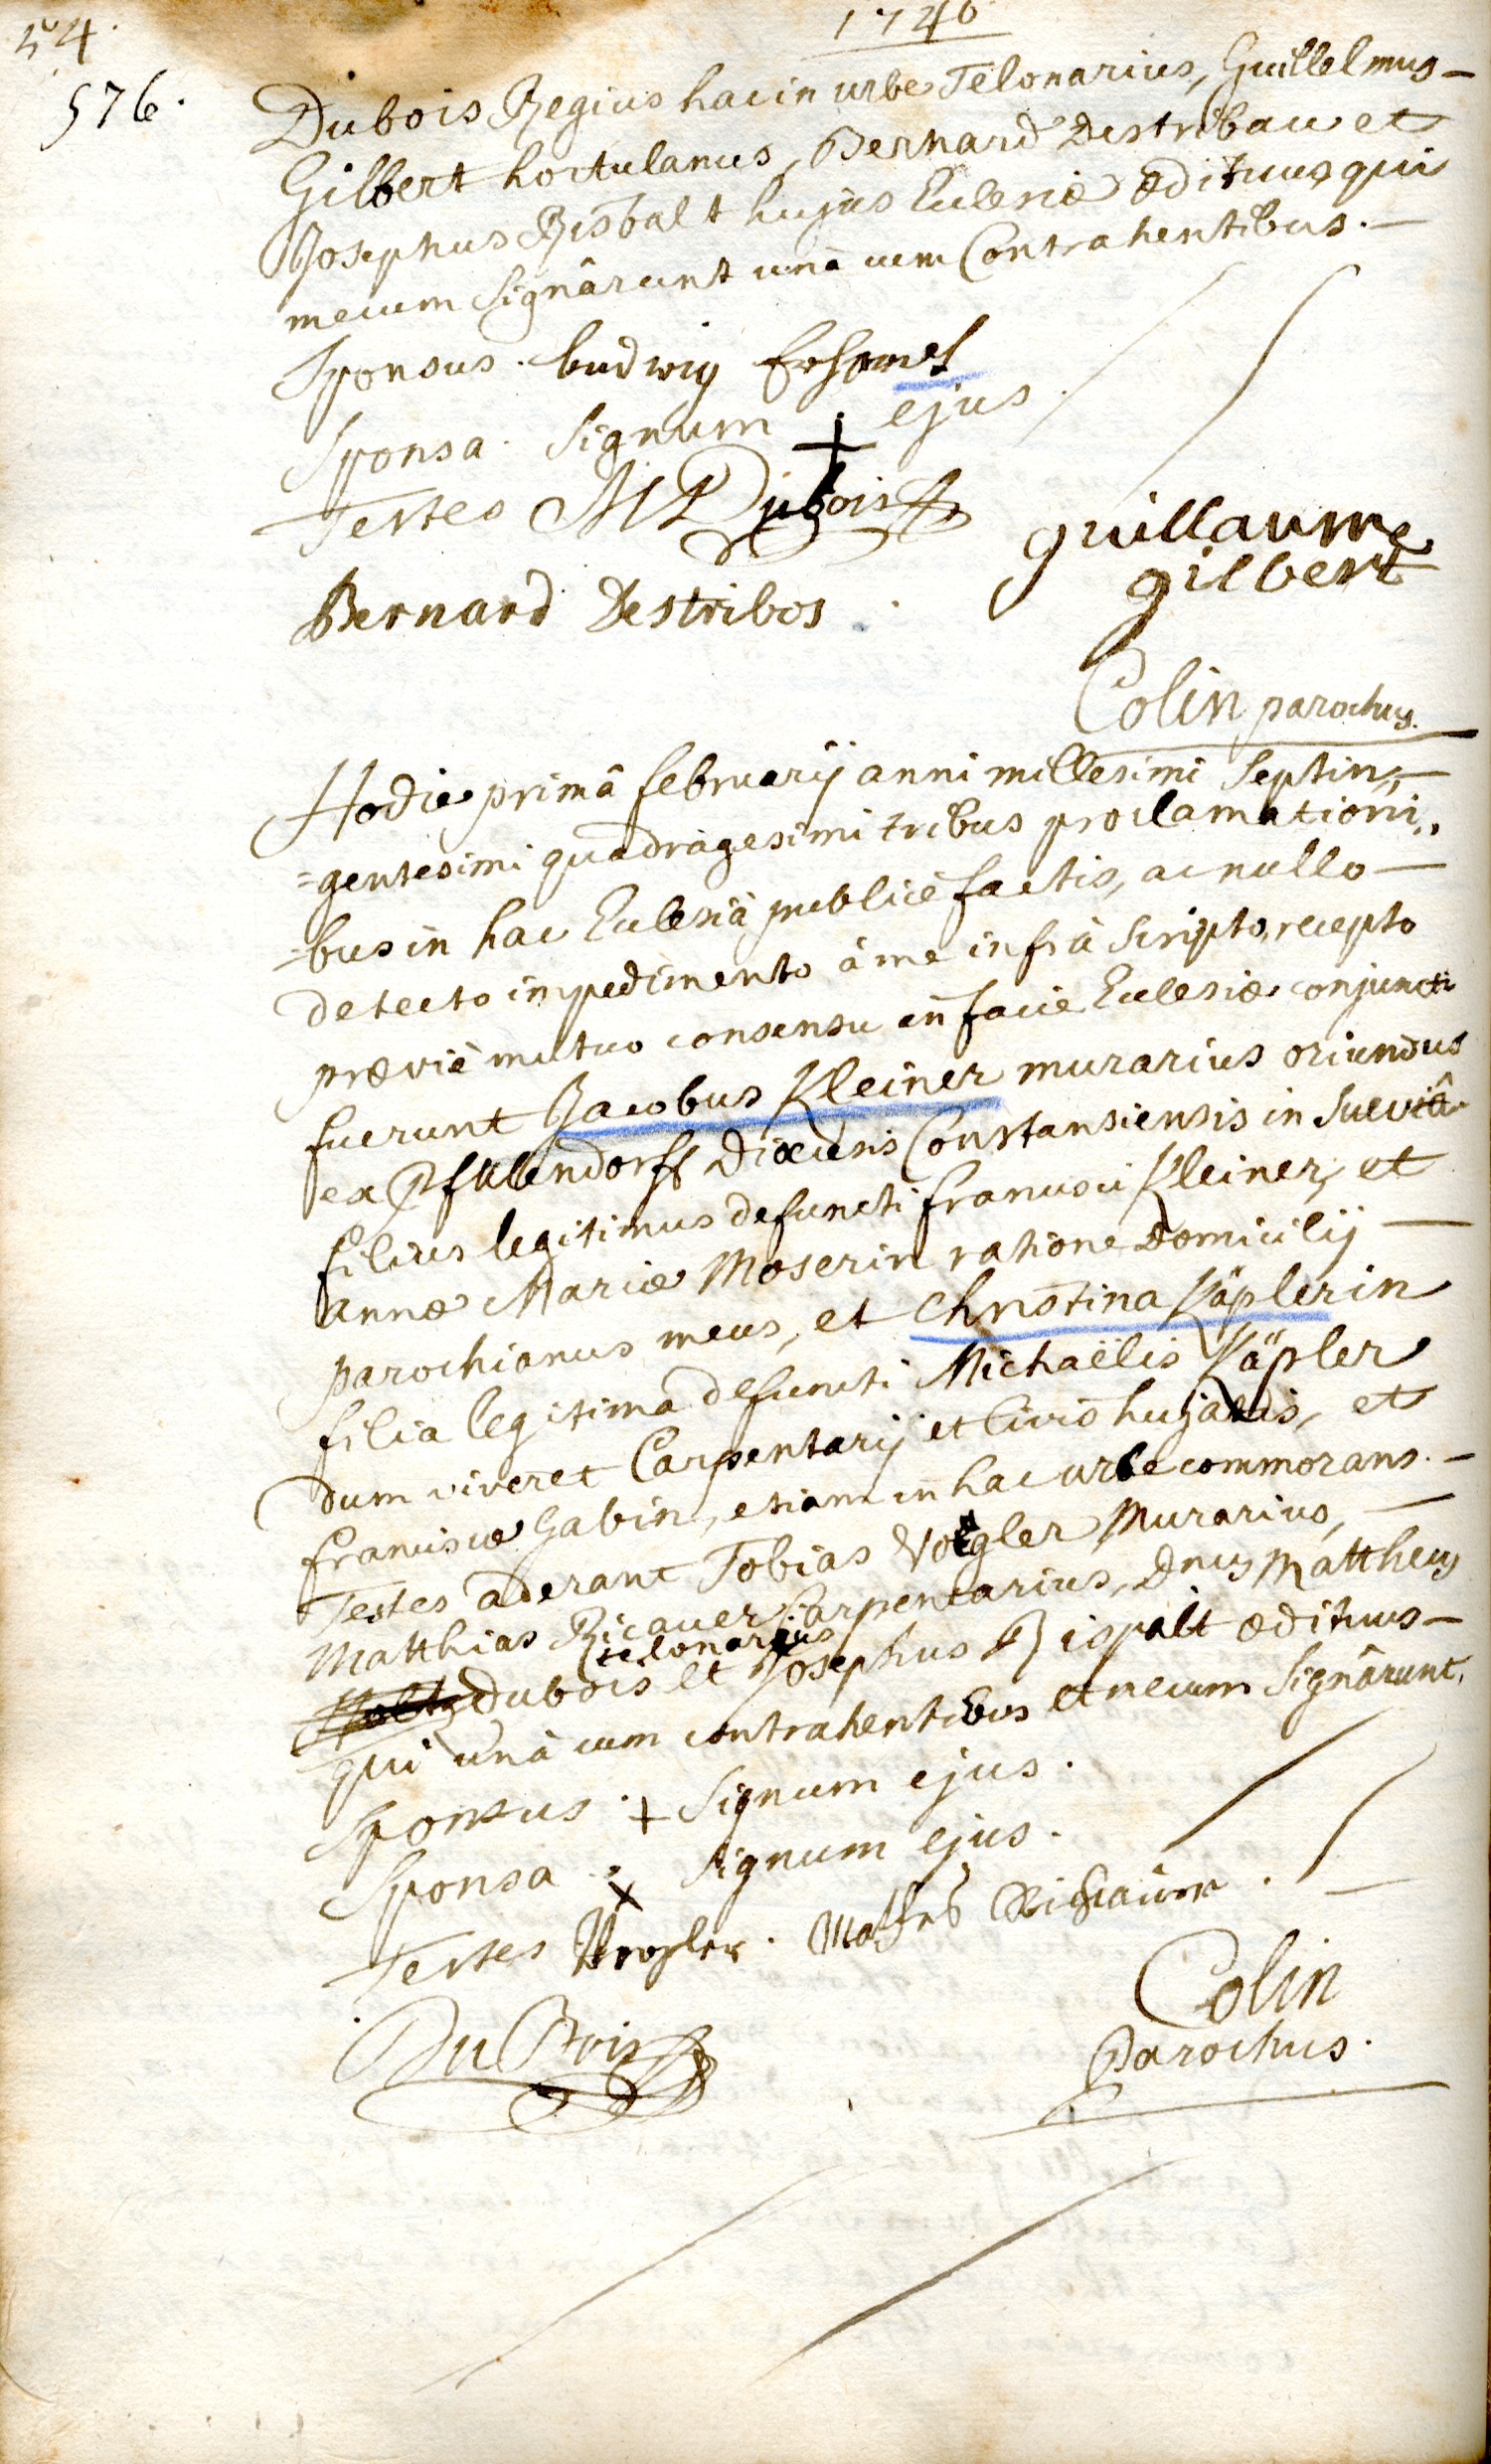 54.
1740
576.
Dubois Regius hac in urbe Telonarius, Guillelmus
Gilbert hortulanus, Bernard Destribau et
Josephus Risbalt hujus Ecclesiæ ædituus qui
mecum signârunt unà cum Contrahentibus.
Sponsus. Ludwig
Sponsa. Signum + ejus.
Testes Dubois
guillaume
gilbert
Bernard Destribos
Colin parochus.
Hodie primâ februarij anni millesimi Septin„
=gentesimi quadragesimi tribus proclamationi„
=bus in hac Ecclesiâ publicè factis, ac nullo
detecto impedimento à me infrà scripto, recepto
prævie mutuo consensu in facie Ecclesiæ conjuncti
fuerunt Jacobus Kleiner murarius oriundus
ex Pfullendorff Diœcesis Constansiensis in Sueviâ
filius legitimus defuncti francisci Kleiner, et
annæ Mariæ Moserin ratione Domicilij
parochianus meus, et Christina Käplerin
filia legitima defuncti Michaëlis Käpler
dum viveret Carpentarij et civis hujatis, et
franciscæ Gabin, etiam in hac urbe commorans.
Testes aderant Tobias Vogler Murarius,
Matthias Ricauer Carpentarius, Dnus Mattheus
telonarius
Dubois et Josephus Rispalt ædituus
qui unà cum contrahentibus et mecum signârunt.
Sponsus. + Signum ejus.
Sponsa. x Signum ejus.
Testes
Du Bois
Colin
Parochus.